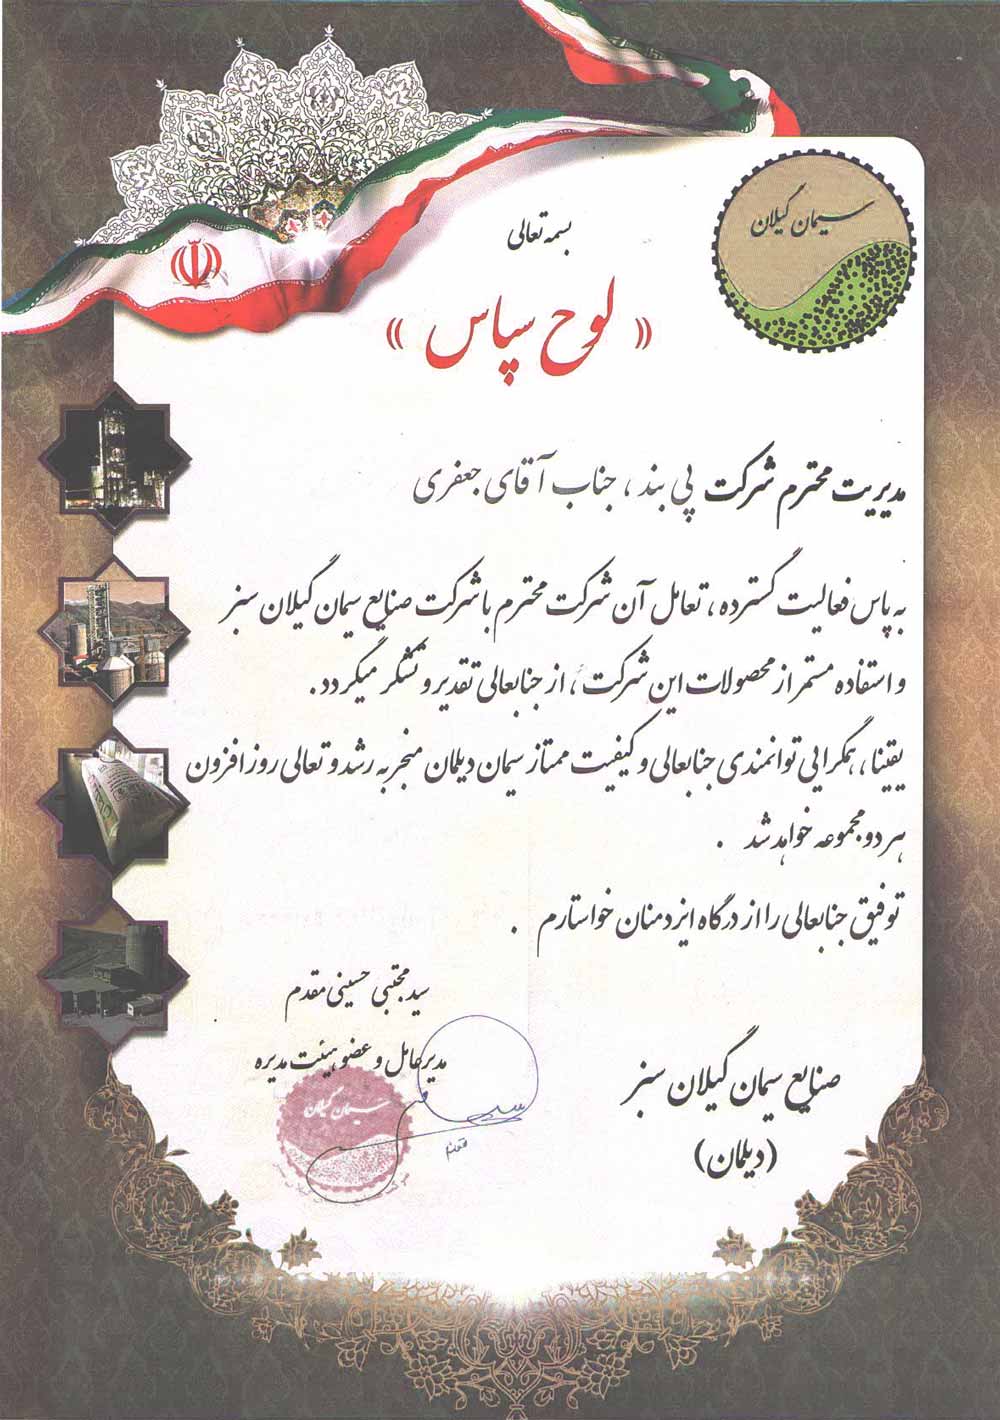 سیمان گیلان
بسمه تعالی
« لوح سپاس »
مدیریت محترم شرکت پی بند ، جناب آقای جعفری
به پاس فعالیت گسترده ، تعامل آن شرکت محترم با شرکت صنایع سیمان گیلان سبز
و استفاده مستمر از محصولات این شرکت ، از جنابعالی تقدیر و تشکر میگردد .
یقینا ، همگرایی توانمندی جنابعالی و کیفیت ممتاز سیمان دیلمان منجر به رشد و تعالی روز افزون
هر دو مجموعه خواهد شد .
توفیق جنابعالی را از درگاه ایزد منان خواستارم .
سید مجتبی حسینی مقدم
مدیرعامل و عضو هیئت مدیره
صنایع سیمان گیلان سبز
(دیلمان)
سیمان گیلان